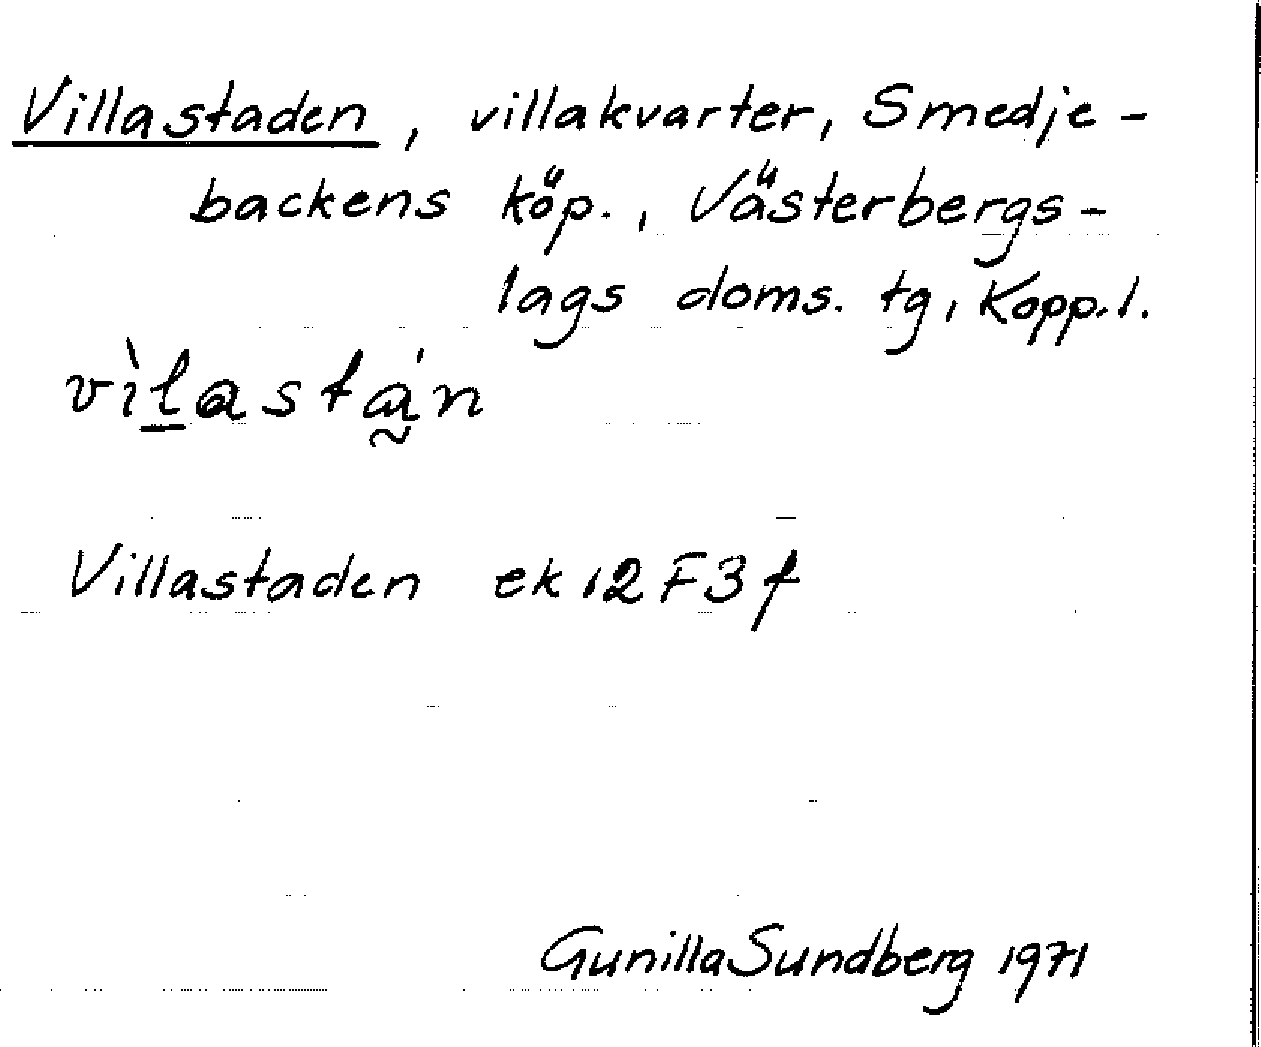 Villastaden, villakvarter, Smedje-
backens köp., Västerbergs-
lags doms. tg, Kopp.l.
vìlastá̰n
Villastaden ek 12 F3f
Gunilla Sundberg 1971